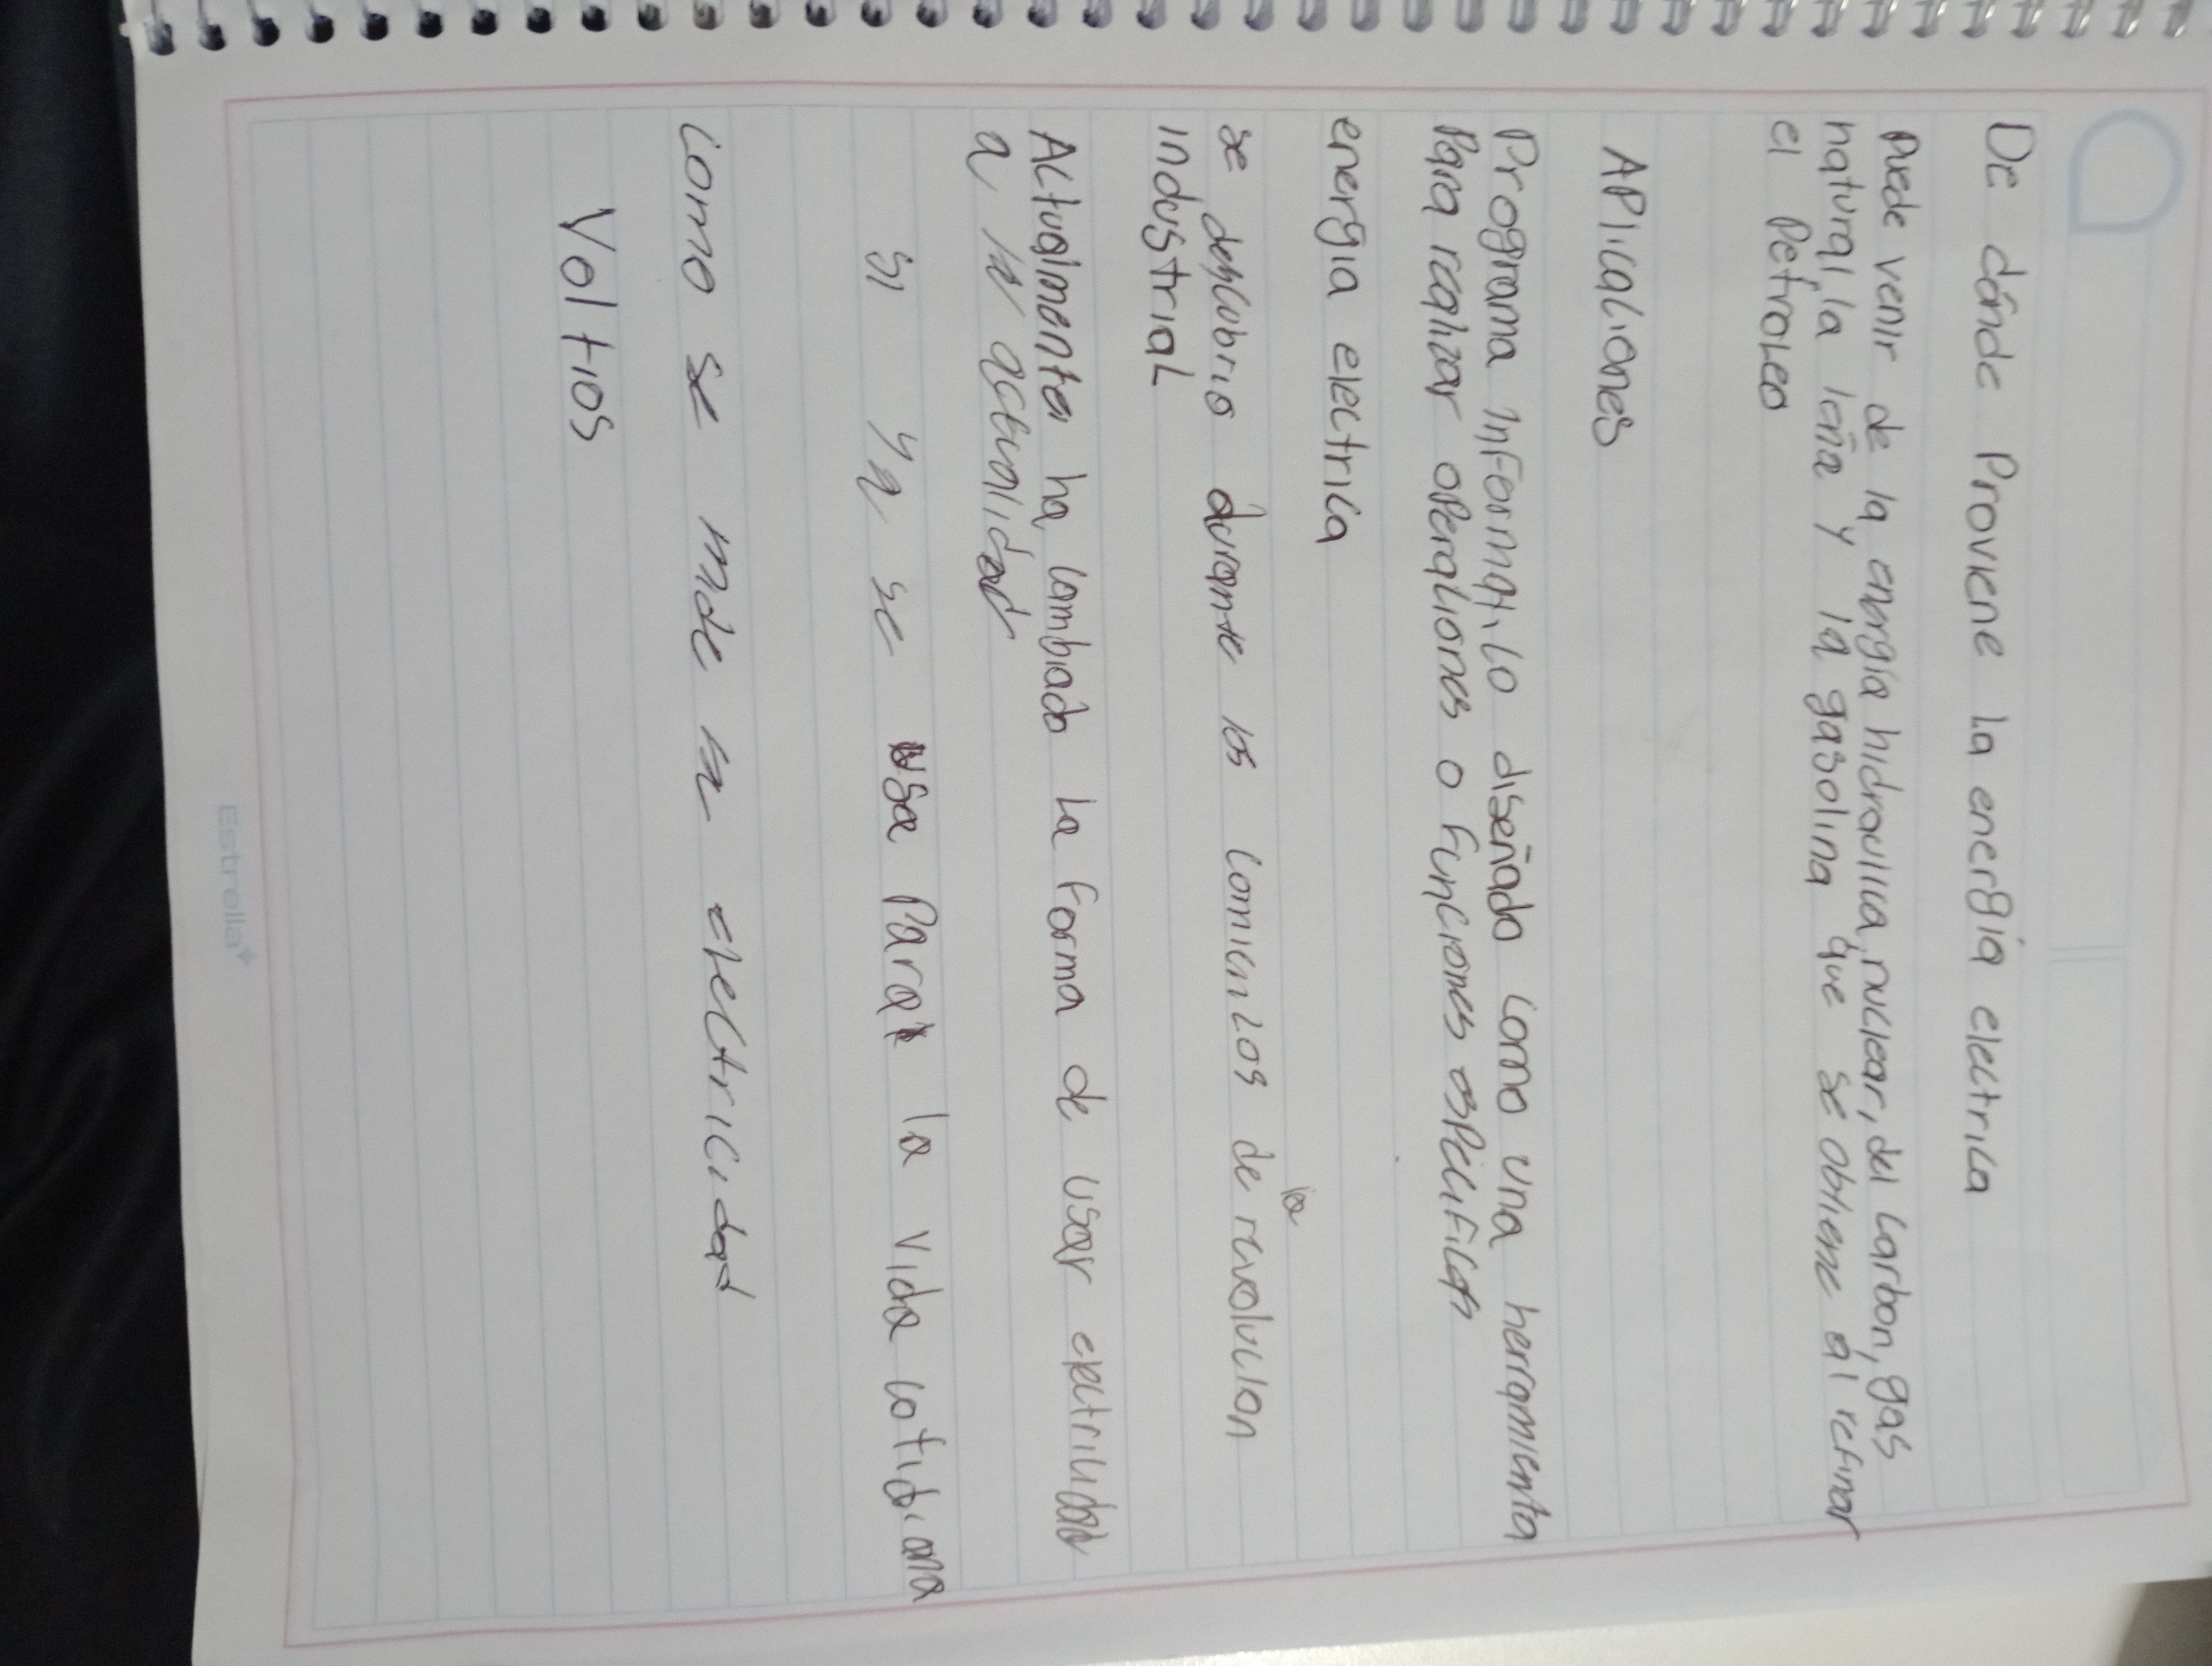 De dónde Proviene la energía electrica
puede venir de la energía hidraulica, nuclear, del carbon, gas
natural, la leña y la gasolina que se obtiene al refinar
el Petroleo
APlicaciones
Programa informatico diseñado como una herramienta
Para realizar operaciones o funciones especificas
energia electrica
se descubrio durante los comienzos de la revolucion
industrial
Actualmente ha cambiado la forma de usar electricidad
a la actualidad
si ya se usa Para la vida cotidiana
Como se mide la electricidad
Voltios
Estrella